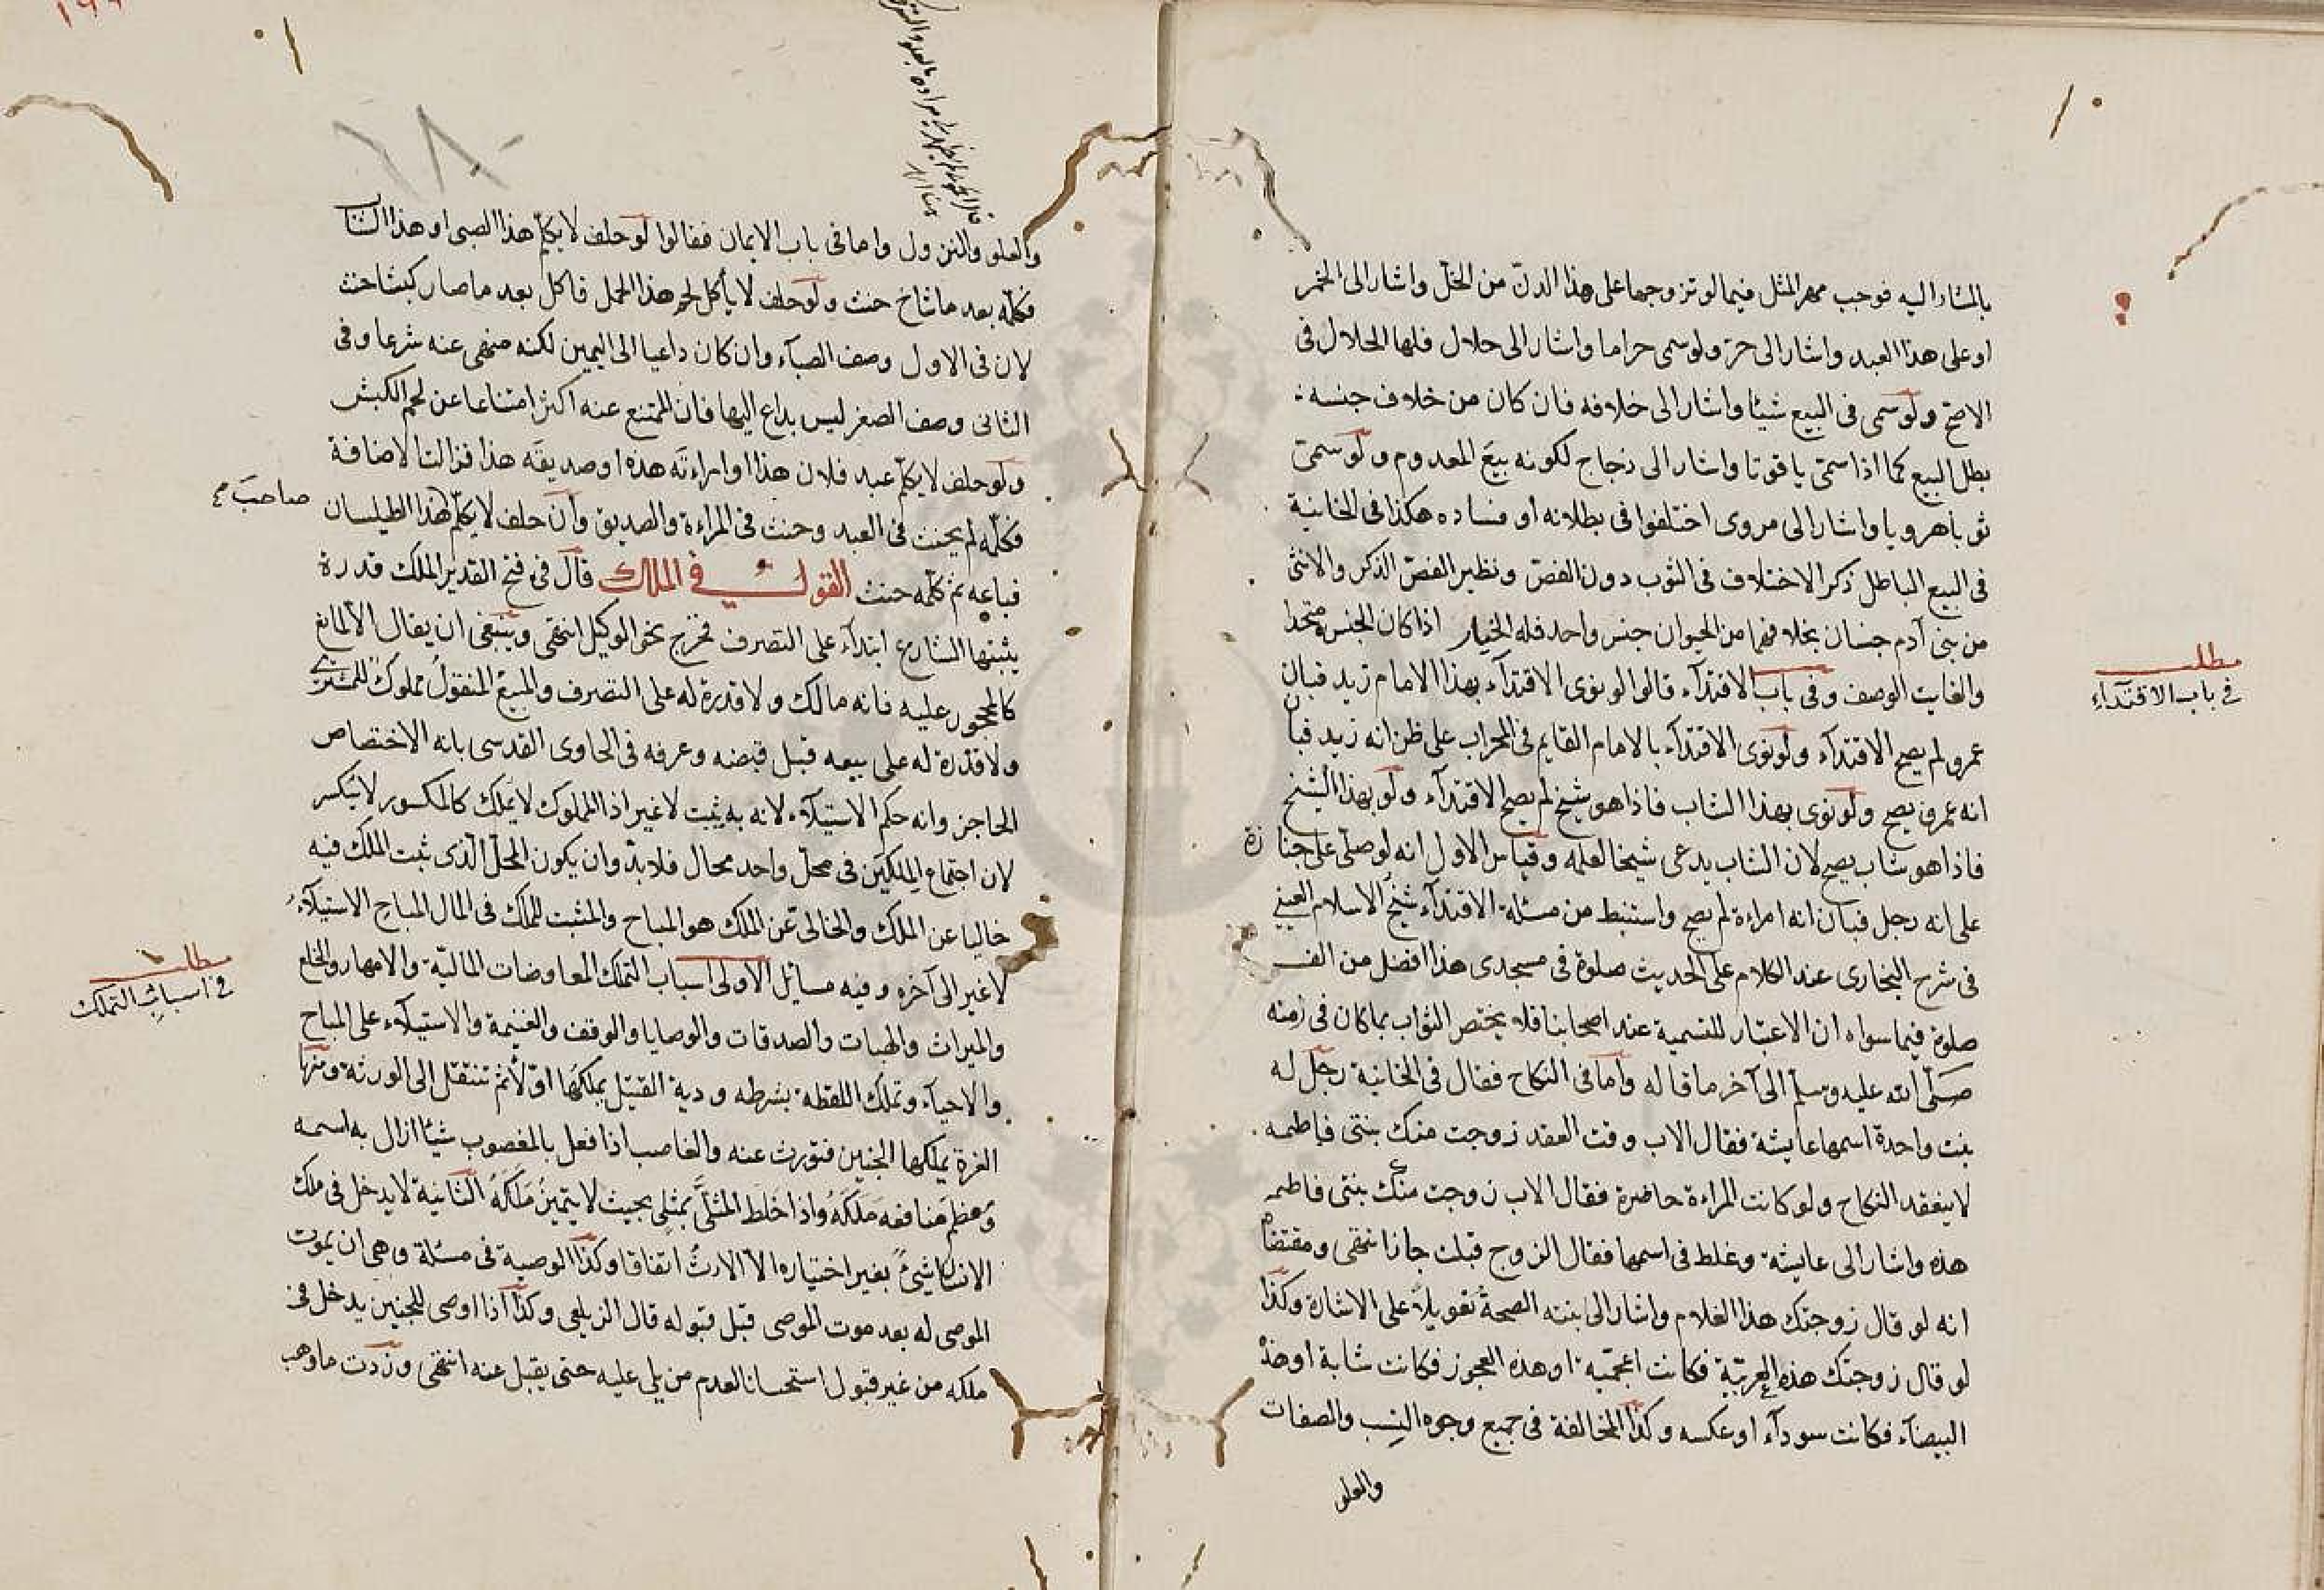 بالمشار اليه فوجب مهر المثل فيما لو تزوجها على هذا الدنّ من الخلّ واشار الى الخمر
او على هذا العبد واشار الى حرّ ولو سمى حراما واشار الى حلال فلها الحلال فى
الاصح ولو سمى فى البيع شيئا واشار الى خلافه فان كان من خلاف جنسه
بطل البيع كما اذا سمّى ياقوتا واشار الى زجاج لكونه بيع المعدوم ولو سمىّ
ثوبا هرويا واشار الى مروى اختلفوا فى بطلانه او فساده هكذا فى الخانية
فى البيع الباطل ذكر الاختلاف فى الثوب دون الفصّ ونظير الفصّ الذكر والانثى
من بنى آدم جنسان بخلافهما من الحيوان جنس واحد فله الخيار اذا كان الجنس متحدا
والفايت الوصف وفى باب الاقتدآء قالوا لو نوى الاقتدآء بهذا الامام زيد فبان
عمرو لم يصح الاقتدآء ولو نوى الاقتدآء بالامام القايم فى المحراب على ظن انه زيد فبان
انه عمرو يصح ولو نوى بهذا الشاب فاذا هو شيخ لم يصح الاقتدآء ولو بهذا الشيخ
فاذا هو شاب يصح لان الشاب يدعى شيخا لعلمه وقياس الاول انه لو صلّى على جنازة
على انه رجل فبان انه امراءة لم يصح واستنبط من مسئلة الاقتدآء شيخ الاسلام العينى
فى شرح البخارى عند الكلام على الحديث صلوة فى مسجدى هذا افضل من الف
صلوة فيما سواه ان الاعتبار للتسمية عند اصحابنا فلا يختص الثواب بما كان فى زمنه
صلّى الله عليه وسلّم الى آخر ما قاله واما فى النكاح فقال فى الخانية رجل له
بنت واحدة اسمها عايشة فقال الاب وقت العقد زوجت منك بنتى فاطمة
لا ينعقد النكاح ولو كانت المراءة حاضرة فقال الاب زوجت منك بنتى فاطمة
هذه واشار الى عايشة وغلط فى اسمها فقال الزوج قبلت جاز انتهى ومقتضاه
انه لو قال زوجتك هذا الغلام واشار الى بنته الصحة تعويلا على الاشارة وكذا
لو قال زوجتك هذه العربيّة فكانت اعجميّة او هذه العجوز فكانت شابة او هذه
البيضآء فكانت سودآء او عكسه وكذا المخالفة فى جميع وجوه النسب والصفات
والعلو
مطلب
فى باب الاقتدآء
والعلو والنزول واما فى باب الايمان فقالوا لو حلف لا يكلّم هذا الصبى او هذا الشاب
فكلّمه بعد ما شاخ حنث ولو حلف لا يأكل لحم هذا الحمل فاكل بعد ما صار كبشا حنث
لان فى الاول وصف الصبآء وان كان داعيا الى اليمين لكنه منهى عنه شرعا وفى
الثانى وصف الصغر ليس بداع اليها فان الممتنع عنه اكثر امتناعا عن لحم الكبش
ولو حلف لا يكلّم عبد فلان هذا او امراءته هذه او صديقه هذا فزالت الاضافة
فكلّمه لم يحنث فى العبد وحنث فى المراءة والصديق وان حلف لا يكلّم هذا الطيلسان
صاحب
فباعه ثم كلّمه حنث القول فى الملك قال فى فتح القدير الملك قدرة
يثبتها الشارع ابتدآء على التصرف فخرج نحو الوكيل انتهى وينبغى ان يقال الّا لمانع
كالمحجور عليه فانه مالك ولا قدرة له على التصرف والمبيع المنقول مملوك للمشترى
ولا قدرة له على بيعه قبل قبضه وعرفه فى الحاوى القدسى بانه الاختصاص
الحاجز وانه حكم الاستيلآء لانه به يثبت لا غير اذ المملوك لا يملك كالمكسور لا يكسر
لان اجتماع الملكين فى محلّ واحد محال فلا بدّ وان يكون المحلّ الّذى ثبت الملك فيه
خاليا عن الملك والخالى عن الملك هو المباح والمثبت للملك فى المال المباح الاستيلآء
لا غير الى آخره وفيه مسائل الاولى اسباب التملك المعاوضات الماليّة والامهار والخلع
والميراث والهبات والصدقات والوصايا والوقف والغنيمة والاستيلآء على المباح
والاحيآء وتملك اللقطة بشرطه ودية القتيل يملكها اوّلا ثم تنتقل الى الورثة ومنها
الغرة يملكها الجنين فتورث عنه والغاصب اذا فعل بالمغصوب شيئا ازال به اسمه
وعظم منافعه ملكه واذا خلط المثلى بمثلى بحيث لا يتميز ملكه الثانية لا يدخل فى ملك
الانسان شىء بغير اختياره الا الارث اتفاقا وكذا الوصية فى مسئلة وهى ان يموت
الموصى له بعد موت الموصى قبل قبوله قال الزيلعى وكذا اذا اوصى للجنين يدخل فى
ملكه من غير قبول استحسانا لعدم من يلى عليه حتى يقبل عنه انتهى وزدت ما وهب
مطلب
فى اسباب التملك